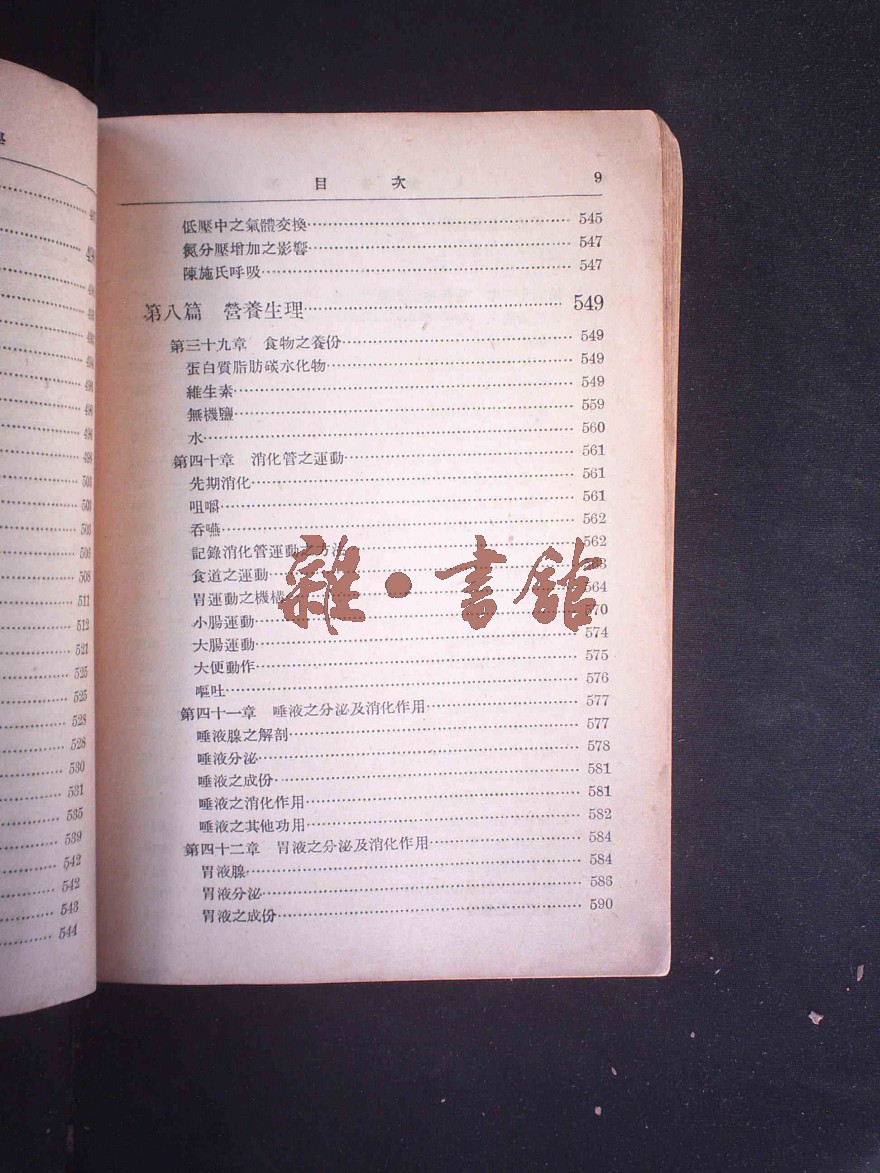 目 次 9
低壓中之氣體交換 545
氮分壓增加之影響 547
陳施氏呼吸 547
第八篇 營養生理 549
第三十九章 食物之養份 549
蛋白質脂肪碳水化物 549
維生素 549
無機鹽 559
水 560
第四十章 消化管之運動 561
先期消化 561
咀嚼 561
吞嚥 562
記錄消化管運動之方法 562
食道之運動
胃運動之機構 564
小腸運動 570
大腸運動 574
大便動作 575
嘔吐 576
第四十一章 唾液之分泌及消化作用 577
唾液腺之解剖 577
唾液分泌 578
唾液之成份 581
唾液之消化作用 581
唾液之其他功用 582
第四十二章 胃液之分泌及消化作用 584
胃液腺 584
胃液分泌 586
胃液之成份 590
雜·書館
498
500
501
503
506
508
511
512
521
525
525
528
528
530
531
535
539
542
542
543
544